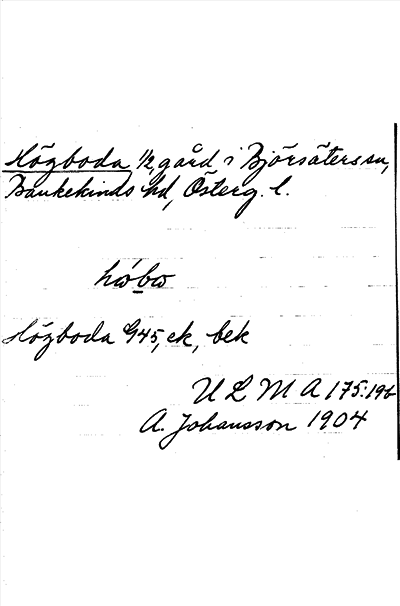 Högboda 1/2 gård i Björsäters sn,
Bankekinds hd, Österg. l.
hώbω
Högboda G45, ek, bek
U L M A 175:196
A. Johansson 1904